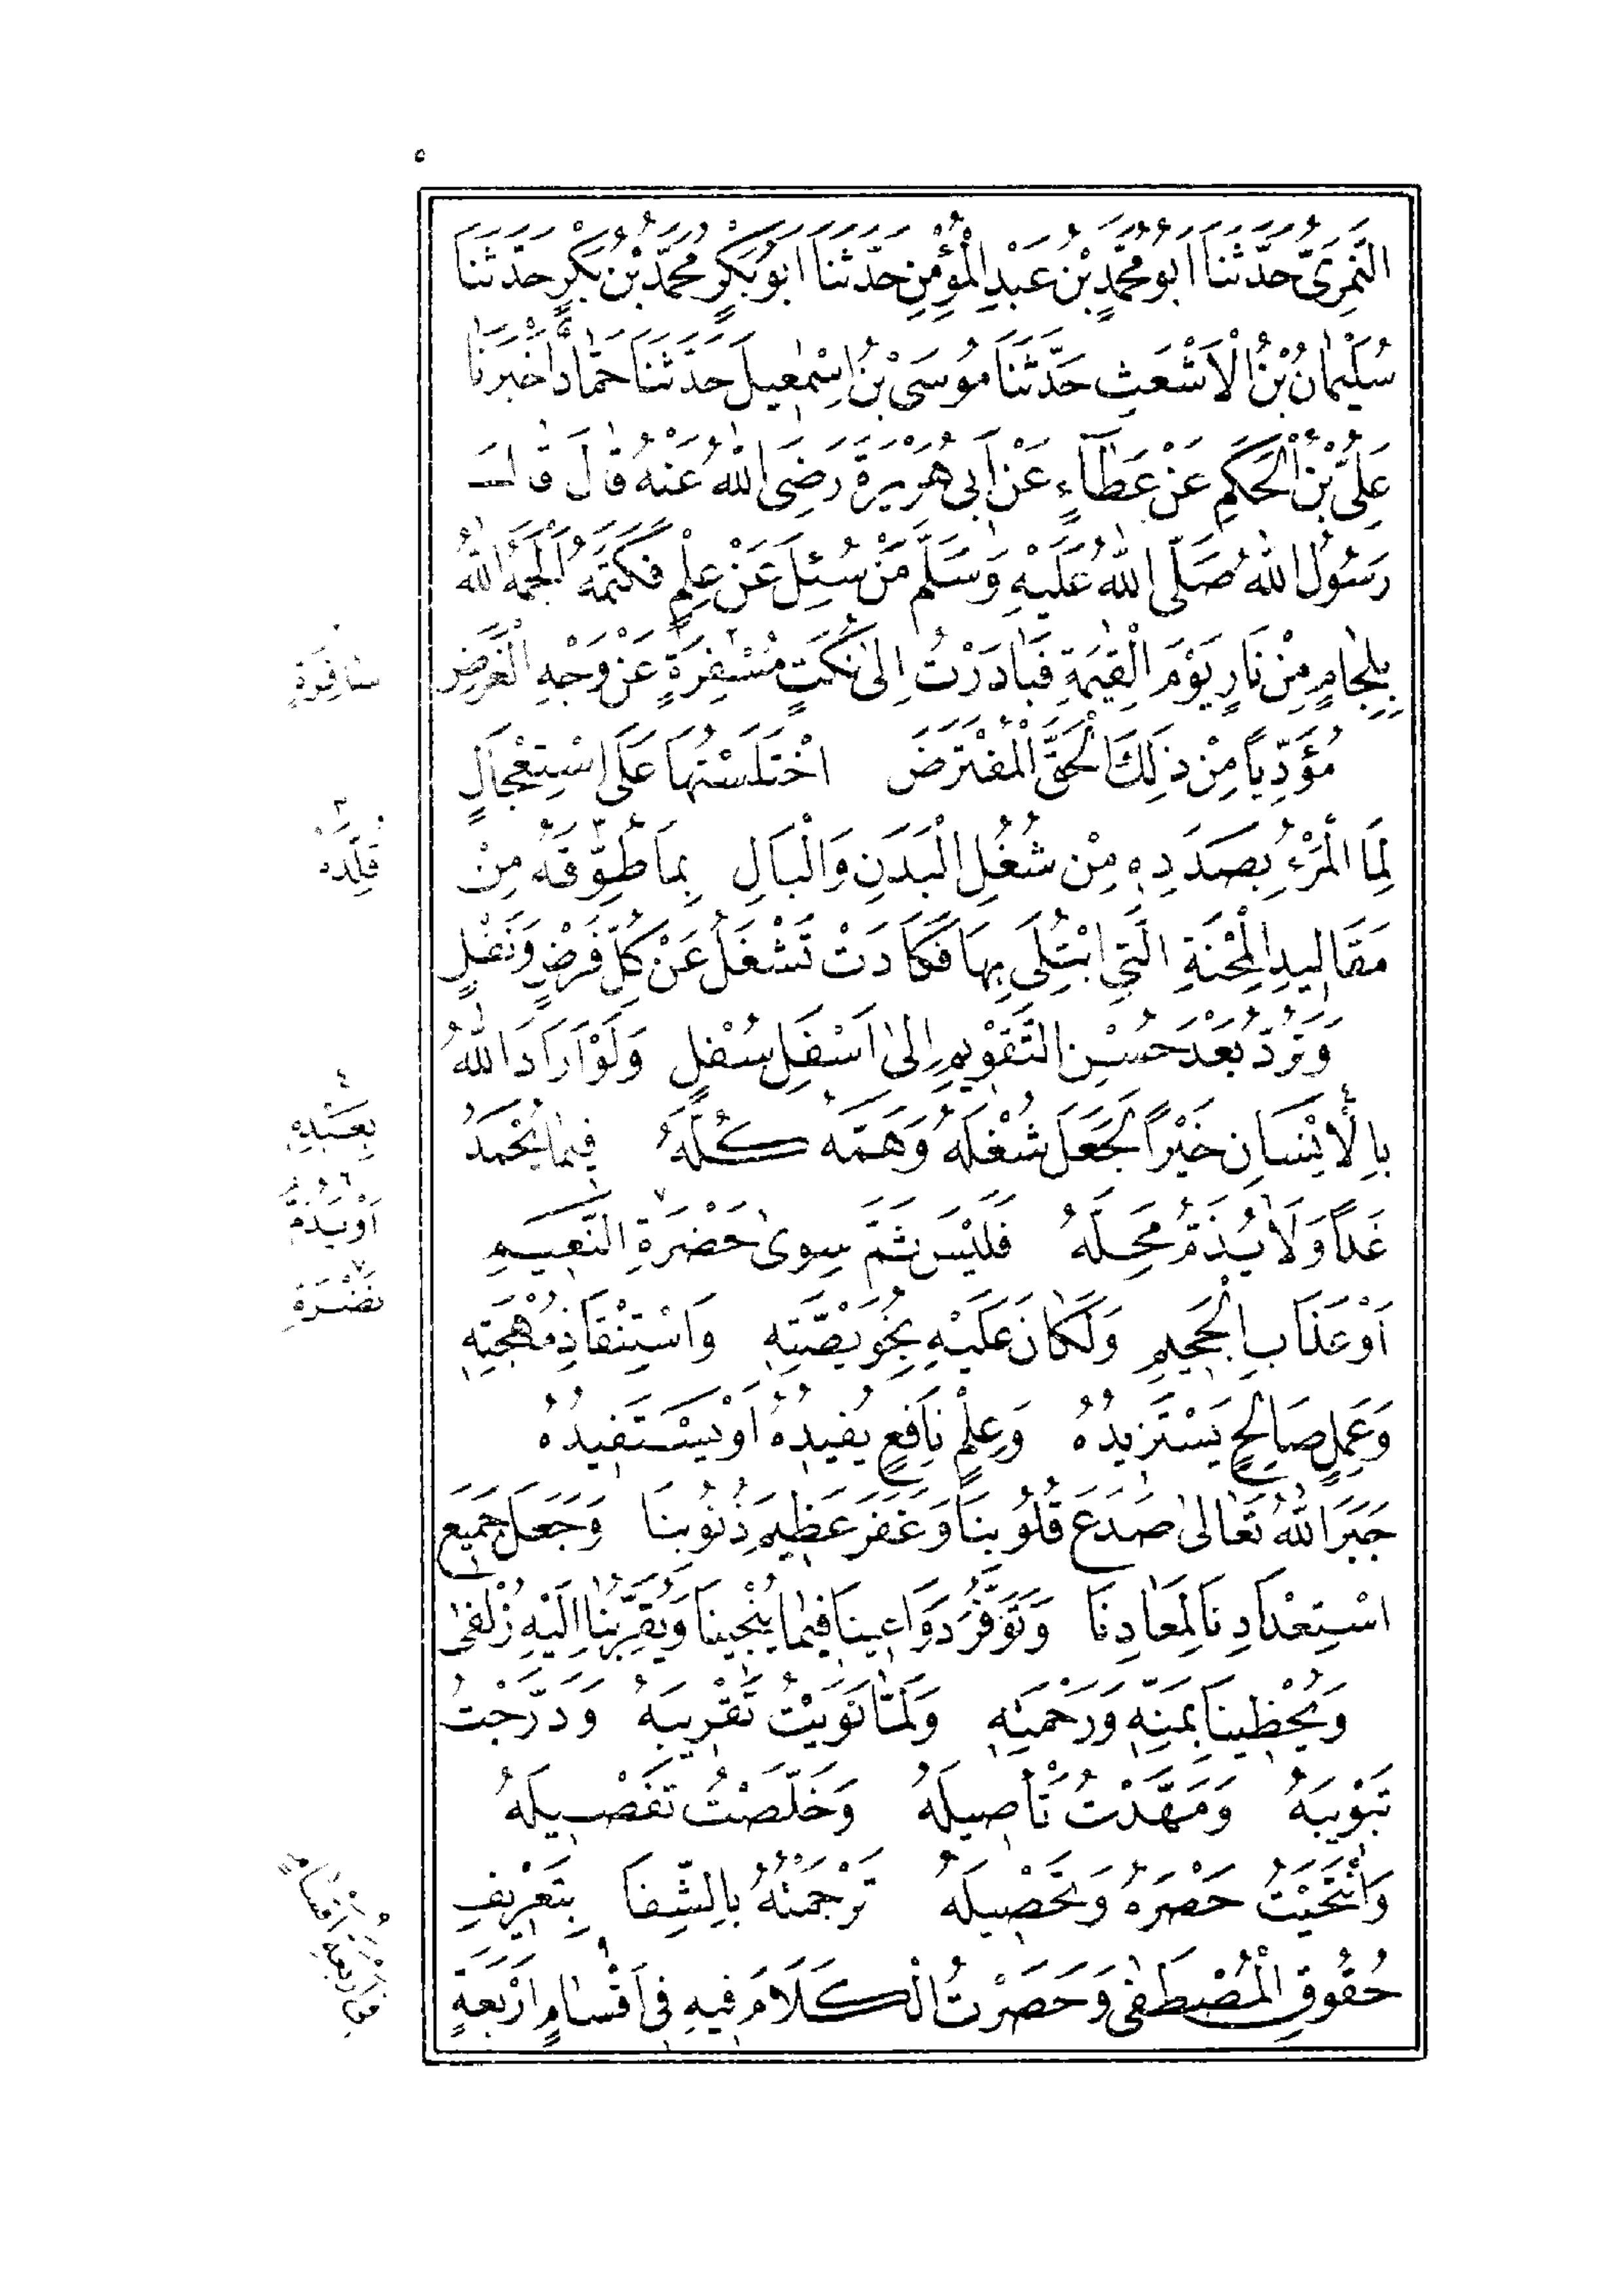 ٥
النَّمَرِىُّ حَدَّثَنَا اَبُو مُحَمَّدِ بْنُ عَبْدِ الْمُؤْمِنِ حَدَّثَنَا اَبُو بَكْرٍ مُحَمَّدُ بْنُ بَكْرٍ حَدَّثَنَا
سُلَيْمٰانُ بْنُ الْاَشْعَثِ حَدَّثَنَا مُوسَى بْنُ اِسْمٰعِيلَ حَدَّثَنَا حَمَّادٌ اَخْبَرَنَا
عَلِىُّ بْنُ الْحَكَمِ عَنْ عَطَآءٍ عَنْ اَبِى هُرَيْرَةَ رَضِىَ اللّٰهُ عَنْهُ قَالَ قَالَ
رَسُولُ اللّٰهِ صَلَّى اللّٰهُ عَلَيْهِ وَسَلَّمَ مَنْ سُئِلَ عَنْ عِلْمٍ فَكَتَمَهُ اَلْجَمَهُ اللّٰهُ
بِلِجَامٍ مِنْ نَارٍ يَوْمَ الْقِيٰمَةِ فَبَادَرْتُ اِلٰى نُكَتٍ مُسْفِرَةٍ عَنْ وَجْهِ الْغَرَضِ
مُؤَدِّيًا مِنْ ذٰلِكَ الْحَقَّ الْمُفْتَرَضَ اخْتَلَسْتُهَا عَلَى اسْتِعْجَالٍ
لِمَا الْمَرْءُ بِصَدَدِهِ مِنْ شُغُلِ الْبَدَنِ وَالْبَالِ بِمَا طُوِّقَهُ مِنْ
مَقَالِيدِ الْمِحْنَةِ الَّتِى ابْتُلِىَ بِهَا فَكَادَتْ تَشْغَلُ عَنْ كُلِّ فَرْضٍ وَنَفْلٍ
وَتَرُدُّ بَعْدَ حُسْنِ التَّقْوِيمِ اِلٰى اَسْفَلِ سُفْلٍ وَلَوْ اَرَادَ اللّٰهُ
بِالْاِنْسَانِ خَيْرًا لَجَعَلَ شُغْلَهُ وَهَمَّهُ كُلَّهُ فِيمَا يُحْمَدُ
غَدًا وَلَا يُذَمُّ مَحِلُّهُ فَلَيْسَ ثَمَّ سِوٰى حَضْرَةِ النَّعِيمِ
اَوْ عَذَابِ الْجَحِيمِ وَلَكَانَ عَلَيْهِ بِخُوَيْصَّتِهِ وَاسْتِنْقَاذِ مُهْجَتِهِ
وَعَمَلٍ صَالِحٍ يَسْتَزِيدُهُ وَعِلْمٍ نَافِعٍ يُفِيدُهُ اَوْ يَسْتَفِيدُهُ
جَبَرَ اللّٰهُ تَعَالٰى صَدَعَ قُلُوبِنَا وَغَفَرَ عَظِيمَ ذُنُوبِنَا وَجَعَلَ جَمِيعَ
اسْتِعْدَادِنَا لِمَعَادِنَا وَتَوَفُّرَ دَوَاعِينَا فِيمَا يُنْجِينَا وَيُقَرِّبُنَا اِلَيْهِ زُلْفٰى
وَيُحْظِينَا بِمَنِّهِ وَرَحْمَتِهِ وَلَمَّا نَوَيْتُ تَقْرِيبَهُ وَدَرَّجْتُ
تَبْوِيبَهُ وَمَهَّدْتُ تَأْصِيلَهُ وَخَلَّصْتُ تَفْصِيلَهُ
وَانْتَحَيْتُ حَصْرَهُ وَتَحْصِيلَهُ تَرْجَمْتُهُ بِالشِّفَا بِتَعْرِيفِ
حُقُوقِ الْمُصْطَفٰى وَحَصَرْتُ الْكَلَامَ فِيهِ فِى اَقْسَامٍ اَرْبَعَةٍ
سَافِرَةٍ
٣
قُلِّدَهُ
٤
بِعَبْدِهِ
٦
اَوْ يُذَمُّ
٧
نَضْرَةِ
فِى اَرْبَعَةِ اَقْسَامٍ